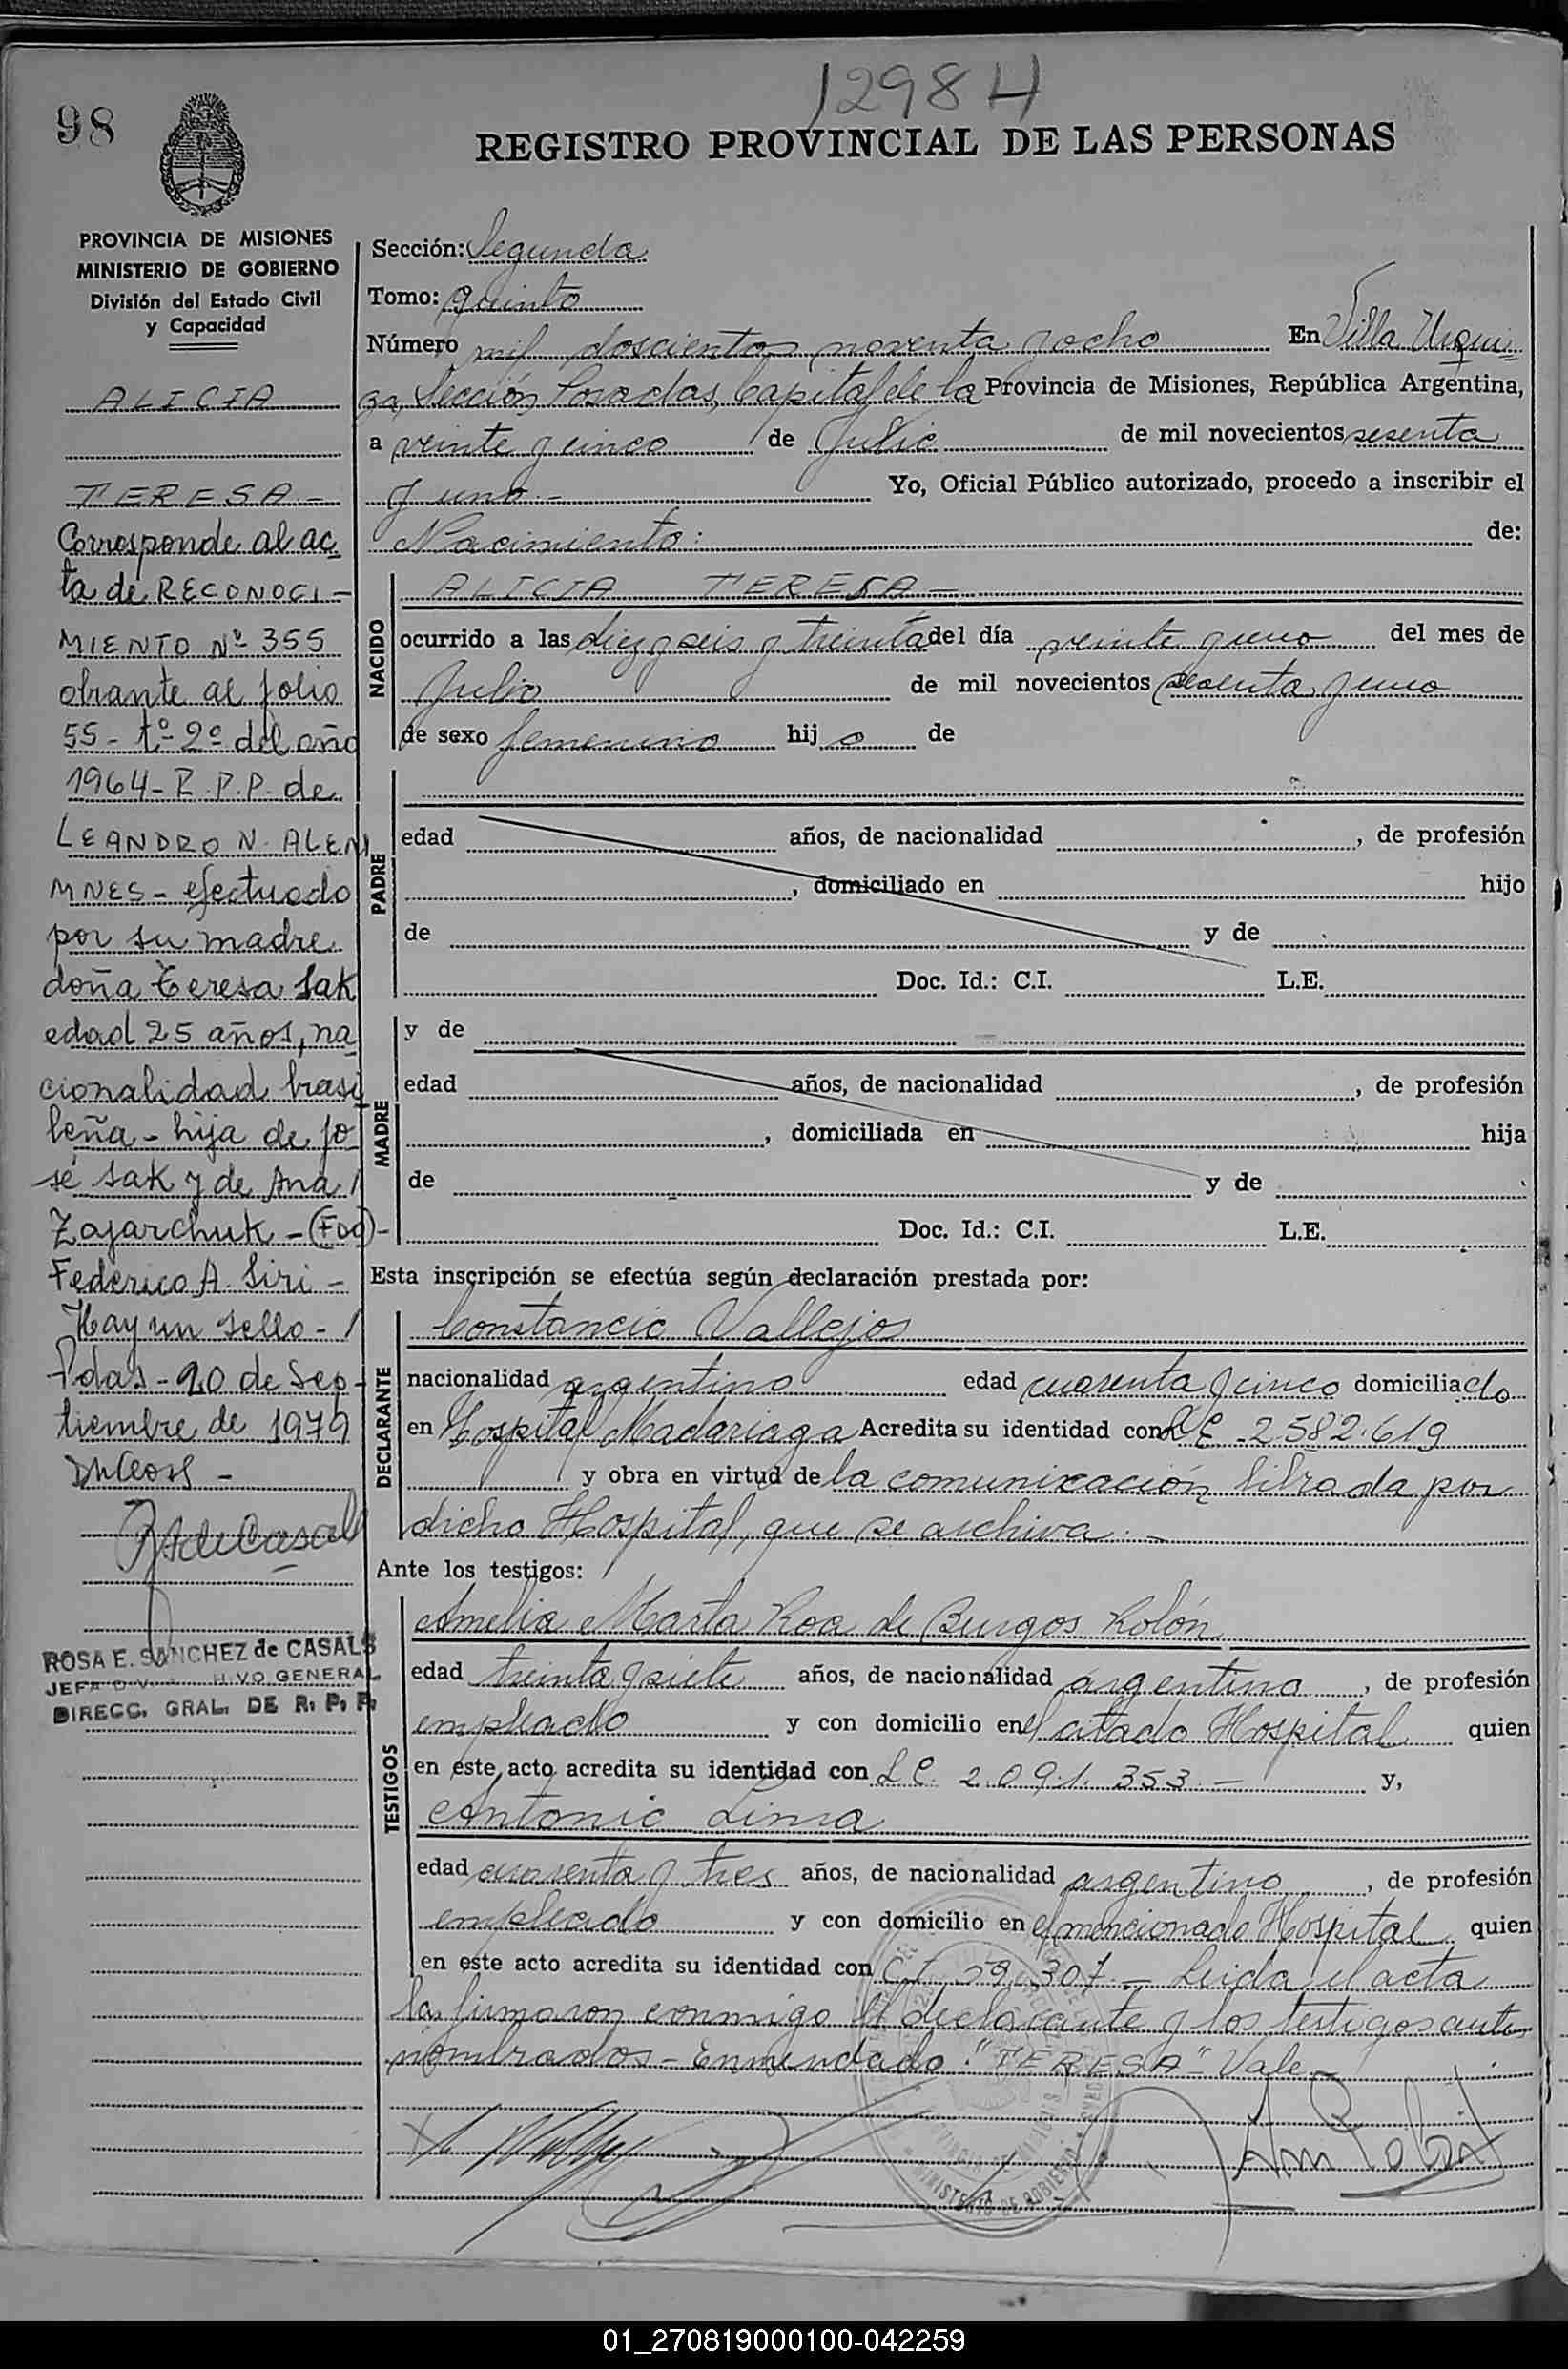 1298 H
98
REGISTRO PROVINCIAL DE LAS PERSONAS
PROVINCIA DE MISIONES
MINISTERIO DE GOBIERNO
División del Estado Civil
y Capacidad
ALICIA
TERESA -
Corresponde al ac
ta de RECONOCI-
MIENTO Nº 355
obrante al folio
55 - tº 2º del año
1964 - R.P.P. de
LEANDRO N. ALEM
MNES - efectuado
por su madre
doña Teresa Sak
edad 25 años, na
cionalidad brasi
leña - hija de Jo
sé Sak y de Ana
Zajarchuk - (Fdo) -
Federico A. Siri -
Hay un sello -
Pdas - 20 de Sep-
tiembre de 1979
ROSA E. SANCHEZ de CASALS
JEFA DIV. GENERAL
DIRECC. GRAL. DE R. P. P.
Sección: Segunda
Tomo: Quinto
Número mil doscientos noventa y ocho En Villa Urqui
za, Sección Posadas, Capital de la Provincia de Misiones, República Argentina,
a veinte y cinco de Julio de mil novecientos sesenta
y uno.- Yo, Oficial Público autorizado, procedo a inscribir el
Nacimiento: de:
NACIDO
ALICIA TERESA -
ocurrido a las diez y seis y treinta del día veinte y uno del mes de
Julio de mil novecientos sesenta y uno
de sexo femenino hij o de
PADRE
edad años, de nacionalidad , de profesión
, domiciliado en hijo
de y de
Doc. Id.: C.I. L.E.
MADRE
y de
edad años, de nacionalidad , de profesión
, domiciliada en hija
de y de
Doc. Id.: C.I. L.E.
Esta inscripción se efectúa según declaración prestada por:
DECLARANTE
Constancio Vallejos
nacionalidad argentino edad cuarenta y cinco domiciliado
en Hospital Madariaga Acredita su identidad con L E 2582.619
y obra en virtud de la comunicación librada por
dicho Hospital, que se archiva.-
Ante los testigos:
TESTIGOS
Amelia Marta Roa de Burgos Rolón
edad treinta y siete años, de nacionalidad argentina, de profesión
empleado y con domicilio en el citado Hospital quien
en este acto acredita su identidad con L C. 2.091.353 - y,
Antonio Lima
edad cuarenta y tres años, de nacionalidad argentino, de profesión
empleado y con domicilio en el mencionado Hospital quien
en este acto acredita su identidad con C I 59.307.- Leida el acta
la firmaron conmigo el declarante y los testigos antes
nombrados - Enmendado: "TERESA" Vale -
MINISTERIO DE GOBIERNO
01_270819000100-042259